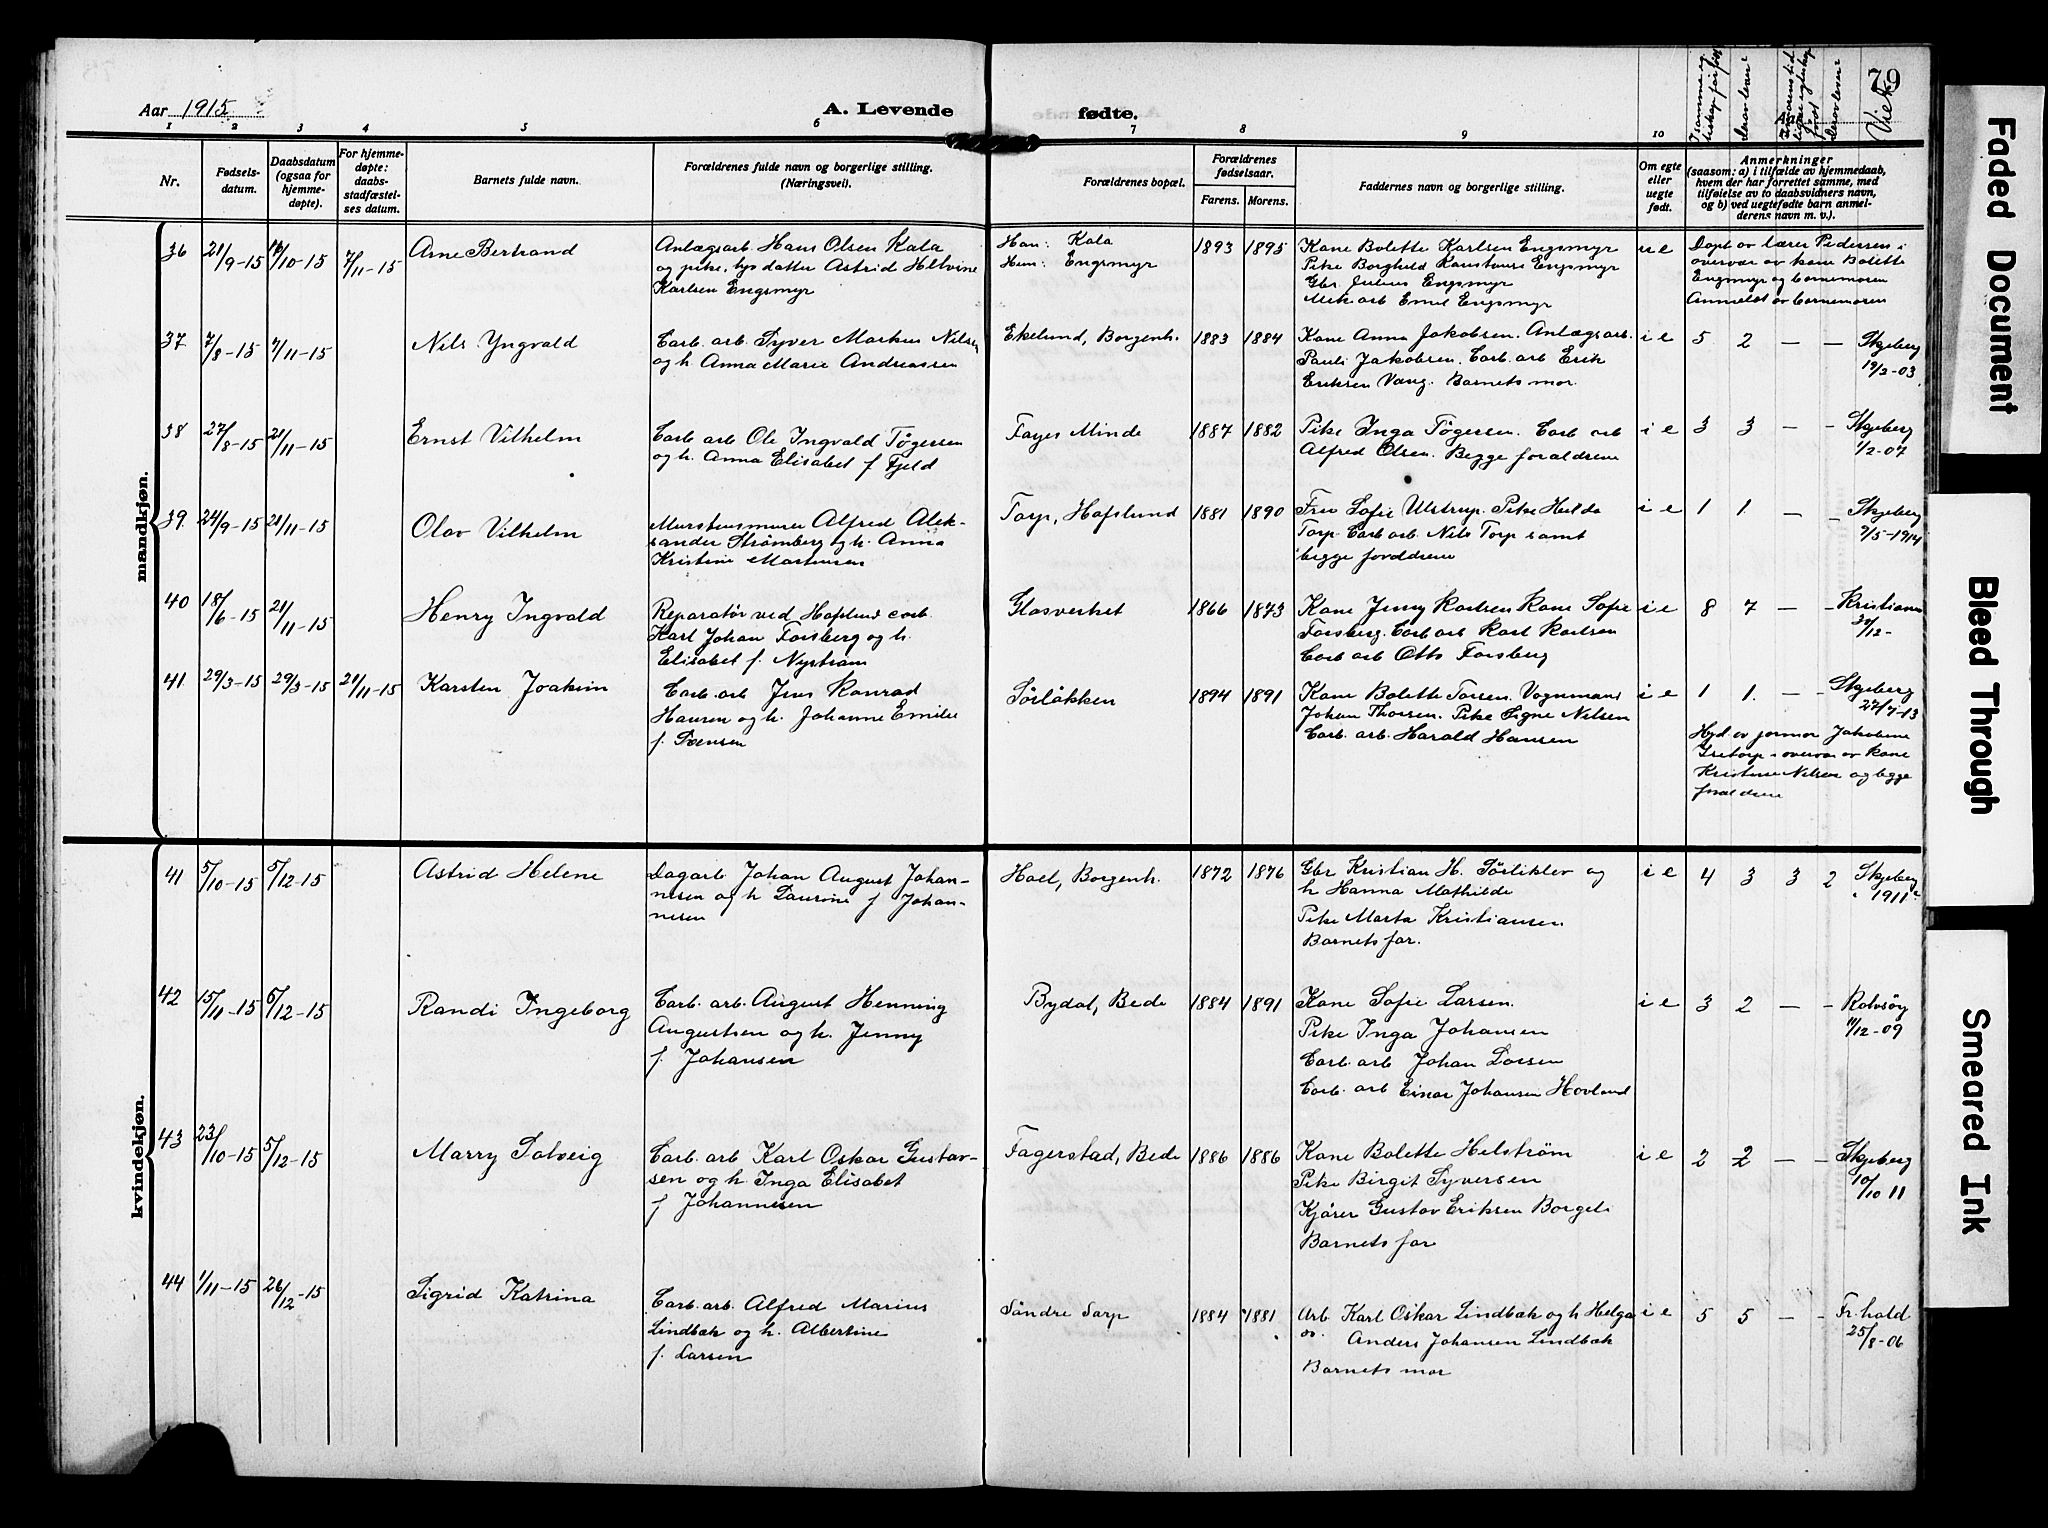 Aar 1915
A. Levende
fødte.
79
Viet
1 2 3 4 5 6 7 8 9 10
Nr.
Fødsels-
datum.
Daabsdatum
(ogsaa for
hjemme-
døpte).
For hjemme-
døpte:
daabs-
stadfæstel-
ses datum.
Barnets fulde navn.
Forældrenes fulde navn og borgerlige stilling.
(Næringsvei).
Forældrenes bopæl.
Forældrenes
fødselsaar.
Farens. Morens.
Faddernes navn og borgerlige stilling.
Om egte
eller
uegte
født.
Anmerkninger
(saasom: a) i tilfælde av hjemmedaab,
hvem der har forrettet samme, med
tilføielse av to daabsvidners navn,
og b) ved uegtefødte barn anmel-
derens navn m. v.).
mandkjøn.
36 21/9-15 /10-15 7/11-15 Arne Bertrand
Anlægsarb. Hans Olsen Kala
og pike, lys datter Astrid Helvine
Karlsen Engsmyr
Han: Kala
Hun: Engsmyr
1893 1895
Kone Bolette Karlsen Engsmyr
Pike Borghild Engsmyr
Gbr. Julius Engsmyr
Mek. arb Emil Engsmyr
u e
Døpt av lærer Pedersen i
overvær av kone Bolette
Engsmyr og barnemoren
Anmeldt av barnemoren
37 7/8-15 7/11-15 Nils Yngvald
Carb. arb. Syver Markus Nilsen
og h. Anna Marie Andreassen
Ekelund, Borgenh.
1883 1884
Kone Anna Jakobsen. Anlægsarb.
Pauli Jakobsen. Carb. arb Erik
Eriksen Vang. Barnets mor.
i e 5 2 — — Skjeberg
19/2-03
38 27/8-15 21/11-15 Ernst Vilhelm
Carb arb Ole Ingvald Tøgersen
og h. Anna Elisabet f. Fjeld
Fayes Minde
1887 1882
Pike Inga Tøgersen. Carb arb
Alfred Olsen. Begge forældrene
i e 3 3 — — Skjeberg
1/2-07
39. 24/9-15 21/11-15 Olav Vilhelm
Murstensmurer Alfred Alek-
sander Strømberg og h. Anna
Kristine Martinsen
Torp, Hafslund
1881 1890
Fru Sofie Ulstrup. Pike Hulda
Torp. Carb arb. Nils Torp samt
begge forældrene
i e 1 1. — — Skjeberg
9/5-1914
40 18/6-15 21/11-15 Henry Ingvald
Reparatør ved Hafslund carb.
Karl Johan Forsberg og h.
Elisabet f. Nystrøm
Glasverket
1866 1873
Kone Jenny Karlsen Kone Sofie
Forsberg. Carb arb Karl Karlsen
Carb arb Otto Forsberg
i e 8 7 — — Kristiania
/12-
41. 29/3-15 29/3-15 21/11-15 Karsten Joakim
Carb. arb Jens Konrad
Hansen og h. Johanne Emilie
f. Svensen
Sørløkken
1894 1891
Kone Bolette Torsen. Vognmand
Johan Thorsen. Pike Signe Nilsen
Carb. arb. Harald Hansen
i e 1 1. — — Skjeberg
27/7-13
Hjd av farmor Jakobine
Gretorp i overvær av kone
Kristine Nilsen og begge
forældrene
kvindekjøn.
41 5/10-15 5/12-15 Astrid Helene
Dagarb Johan August Johan-
nesen og h Laurine f Johan-
nesen
Hoel, Borgenh.
1872 1876
Gbr Kristian H. Sørliklev og
h Hanna Mathilde
Pike Marta Kristiansen
Barnets far.
i e 4 3 3 2 Skjeberg
1911
42 15/11-15 5/12-15 Randi Ingeborg
Carb. arb. August Henning
Augustsen og h. Jenny
f. Johansen
Bydal, Bede
1884 1891
Kone Sofie Larsen.
Pike Inga Johansen
Carb. arb Johan Larsen
Carb. arb Einar Johansen Hovland
i e 3 2 — — Rolvsøy
11/12-09
43 23/10-15 5/12-15 Marry Solveig
Carb. arb Karl Oskar Gustav-
sen og h. Inga Elisabet
f Johannesen
Fagerstad, Bede
1886 1886
Kone Bolette Helstrøm
Pike Birgit Syversen
Kjører Gustav Eriksen Borgeli
Barnets far
i e 2 2 — — Skjeberg
10/10 11
44 1/11-15 26/12-15 Sigrid Katrina
Carb. arb. Alfred Marius
Lindbæk og h. Albertine
f. Larsen
Søndre Sarp
1884 1881
Arb Karl Oskar Lindbæk og h Helga
Anders Johansen Lindbæk
Barnets mor
i e 5 5 — — Fr. hald
25/8-06
Faded Document
Bleed Through
Smeared Ink